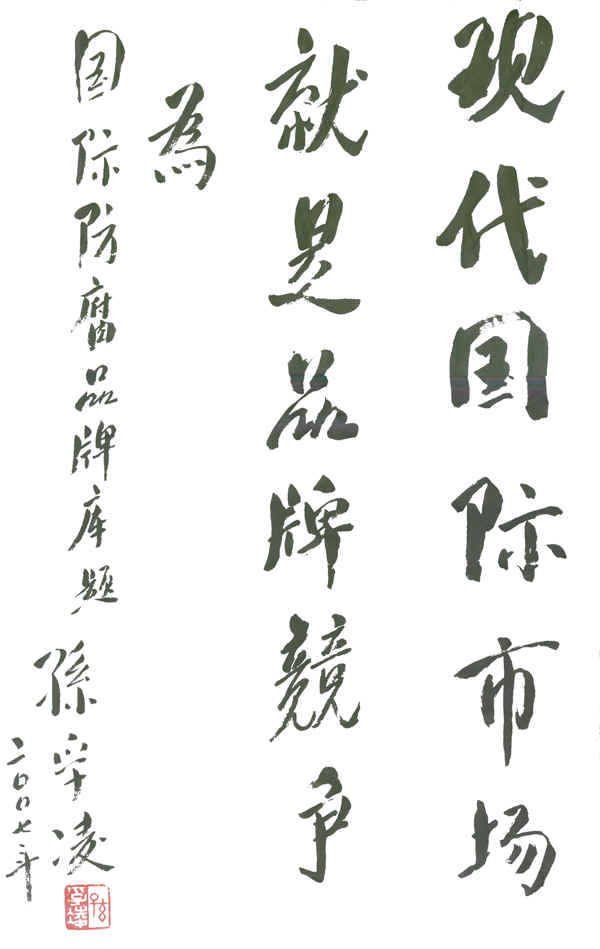 现代国际市场
就是品牌競争
為
国际防腐品牌库题
孫孚凌
二〇〇七年